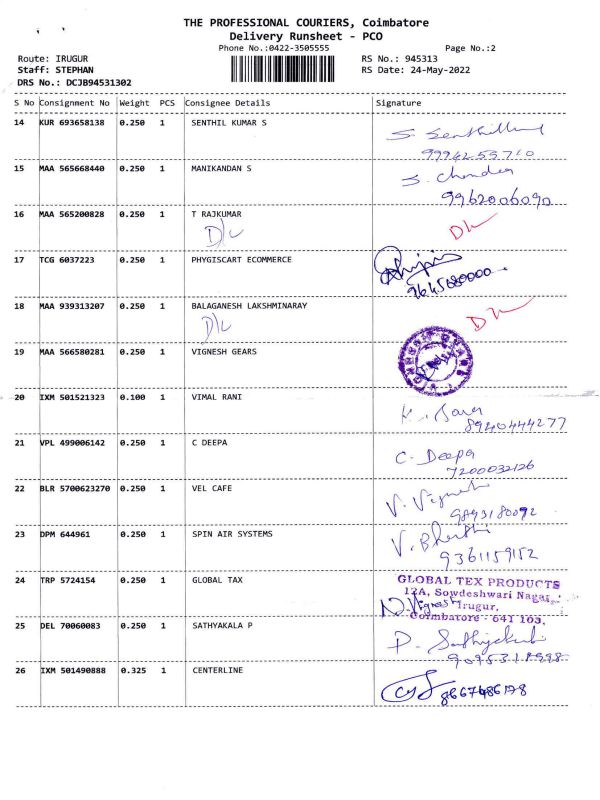 THE PROFESSIONAL COURIERS, Coimbatore
Delivery Runsheet - PCO
Phone No.:0422-3505555 Page No.:2
Route: IRUGUR RS No.: 945313
Staff: STEPHAN RS Date: 24-May-2022
DRS No.: DCJB94531302
S No Consignment No Weight PCS Consignee Details Signature
14 KUR 693658138 0.250 1 SENTHIL KUMAR S
9994255710
15 MAA 565668440 0.250 1 MANIKANDAN S S. Chandra
9962006090
16 MAA 565200828 0.250 1 T RAJKUMAR
D/L D/L
17 TCG 6037223 0.250 1 PHYGISCART ECOMMERCE
9645680000
18 MAA 939313207 0.250 1 BALAGANESH LAKSHMINARAY
D/L D/L
19 MAA 566580281 0.250 1 VIGNESH GEARS
20 IXM 501521323 0.100 1 VIMAL RANI
8940444277
21 VPL 499006142 0.250 1 C DEEPA C. Deepa
7200032126
22 BLR 5700623270 0.250 1 VEL CAFE V. Vignesh
9893180092
23 DPM 644961 0.250 1 SPIN AIR SYSTEMS V. Bharthi
9361159152
24 TRP 5724154 0.250 1 GLOBAL TAX GLOBAL TEX PRODUCTS
12A, Sowdeshwari Nagar,
N. Vignesh Irugur,
Coimbatore - 641 103.
25 DEL 70060083 0.250 1 SATHYAKALA P P. Sathyakala
26 IXM 501490888 0.325 1 CENTERLINE
8667486178